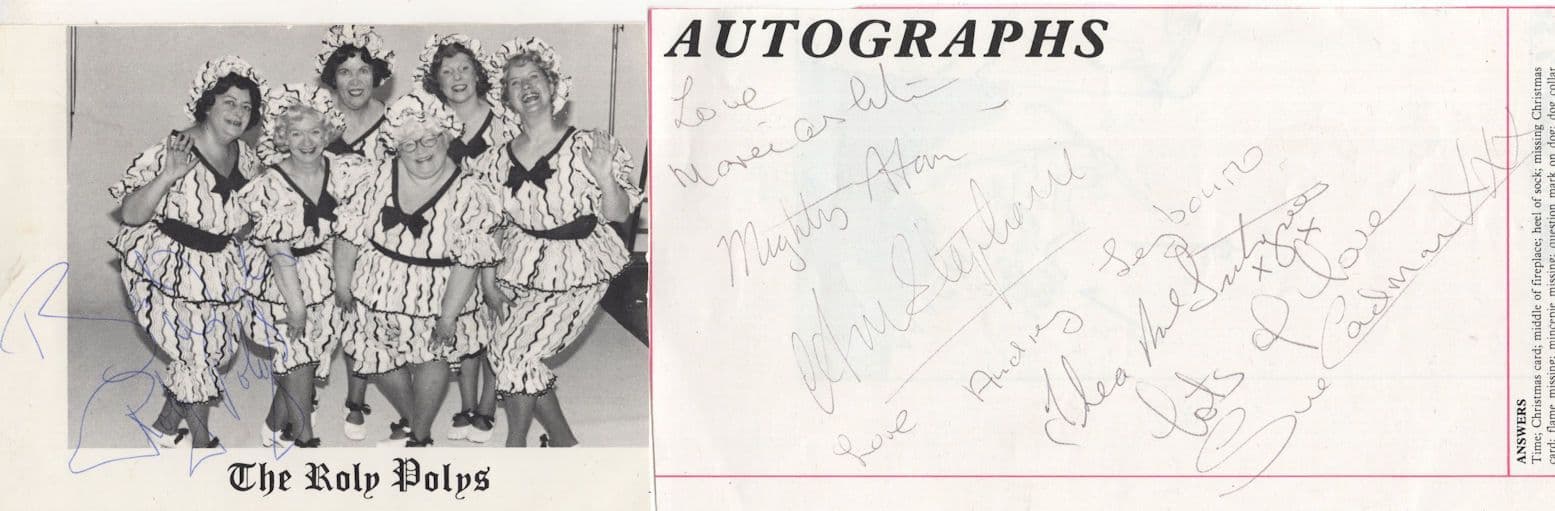 The Roly Polys
Roly
Polys
AUTOGRAPHS
Love
Marie Ashton
Mighty Atom
Stephanie
Love Audrey Leybourne
Thea MacIntyre
xx
lots of love
Sue Cadman XXX
ANSWERS
Time; Christmas card; middle of fireplace; heel of sock; missing Christmas
card; flame missing; mincepie missing; question mark on dog; dog collar